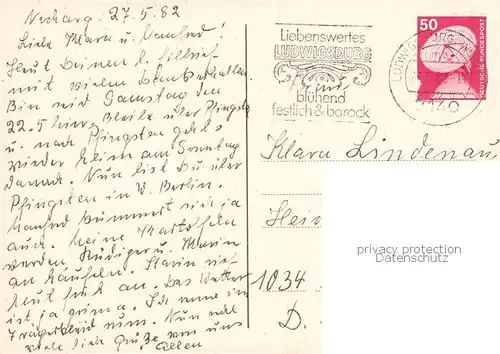 Neckarg. 27.5.82
Liebe Klara u. Manfred!
Heut deinen l.
mit vielem Dank erhalten
Bin seid Samstag den
22.5 hier Bleibe über Pfingsten
u. nach Pfingsten gehts
wieder heim am Sonntag
danach. Nun bist Du über
Pfingsten in W. Berlin.
Manfred kümmert sich ja
aum. meine Kartoffeln
werden Rüdiger u.
an häufeln.
heut früh an. Das Wetter
ist ja prima. Ich
Trägerkleid rum. Nun
viele liebe Grüße von uns
allen
Liebenswertes
LUDWIGSBURG
blühend
festlich & barock
LUDWIGSBURG
7140
50
DEUTSCHE BUNDESPOST
Klara Lindenau
Hei
1034
D.
privacy protection
Datenschutz